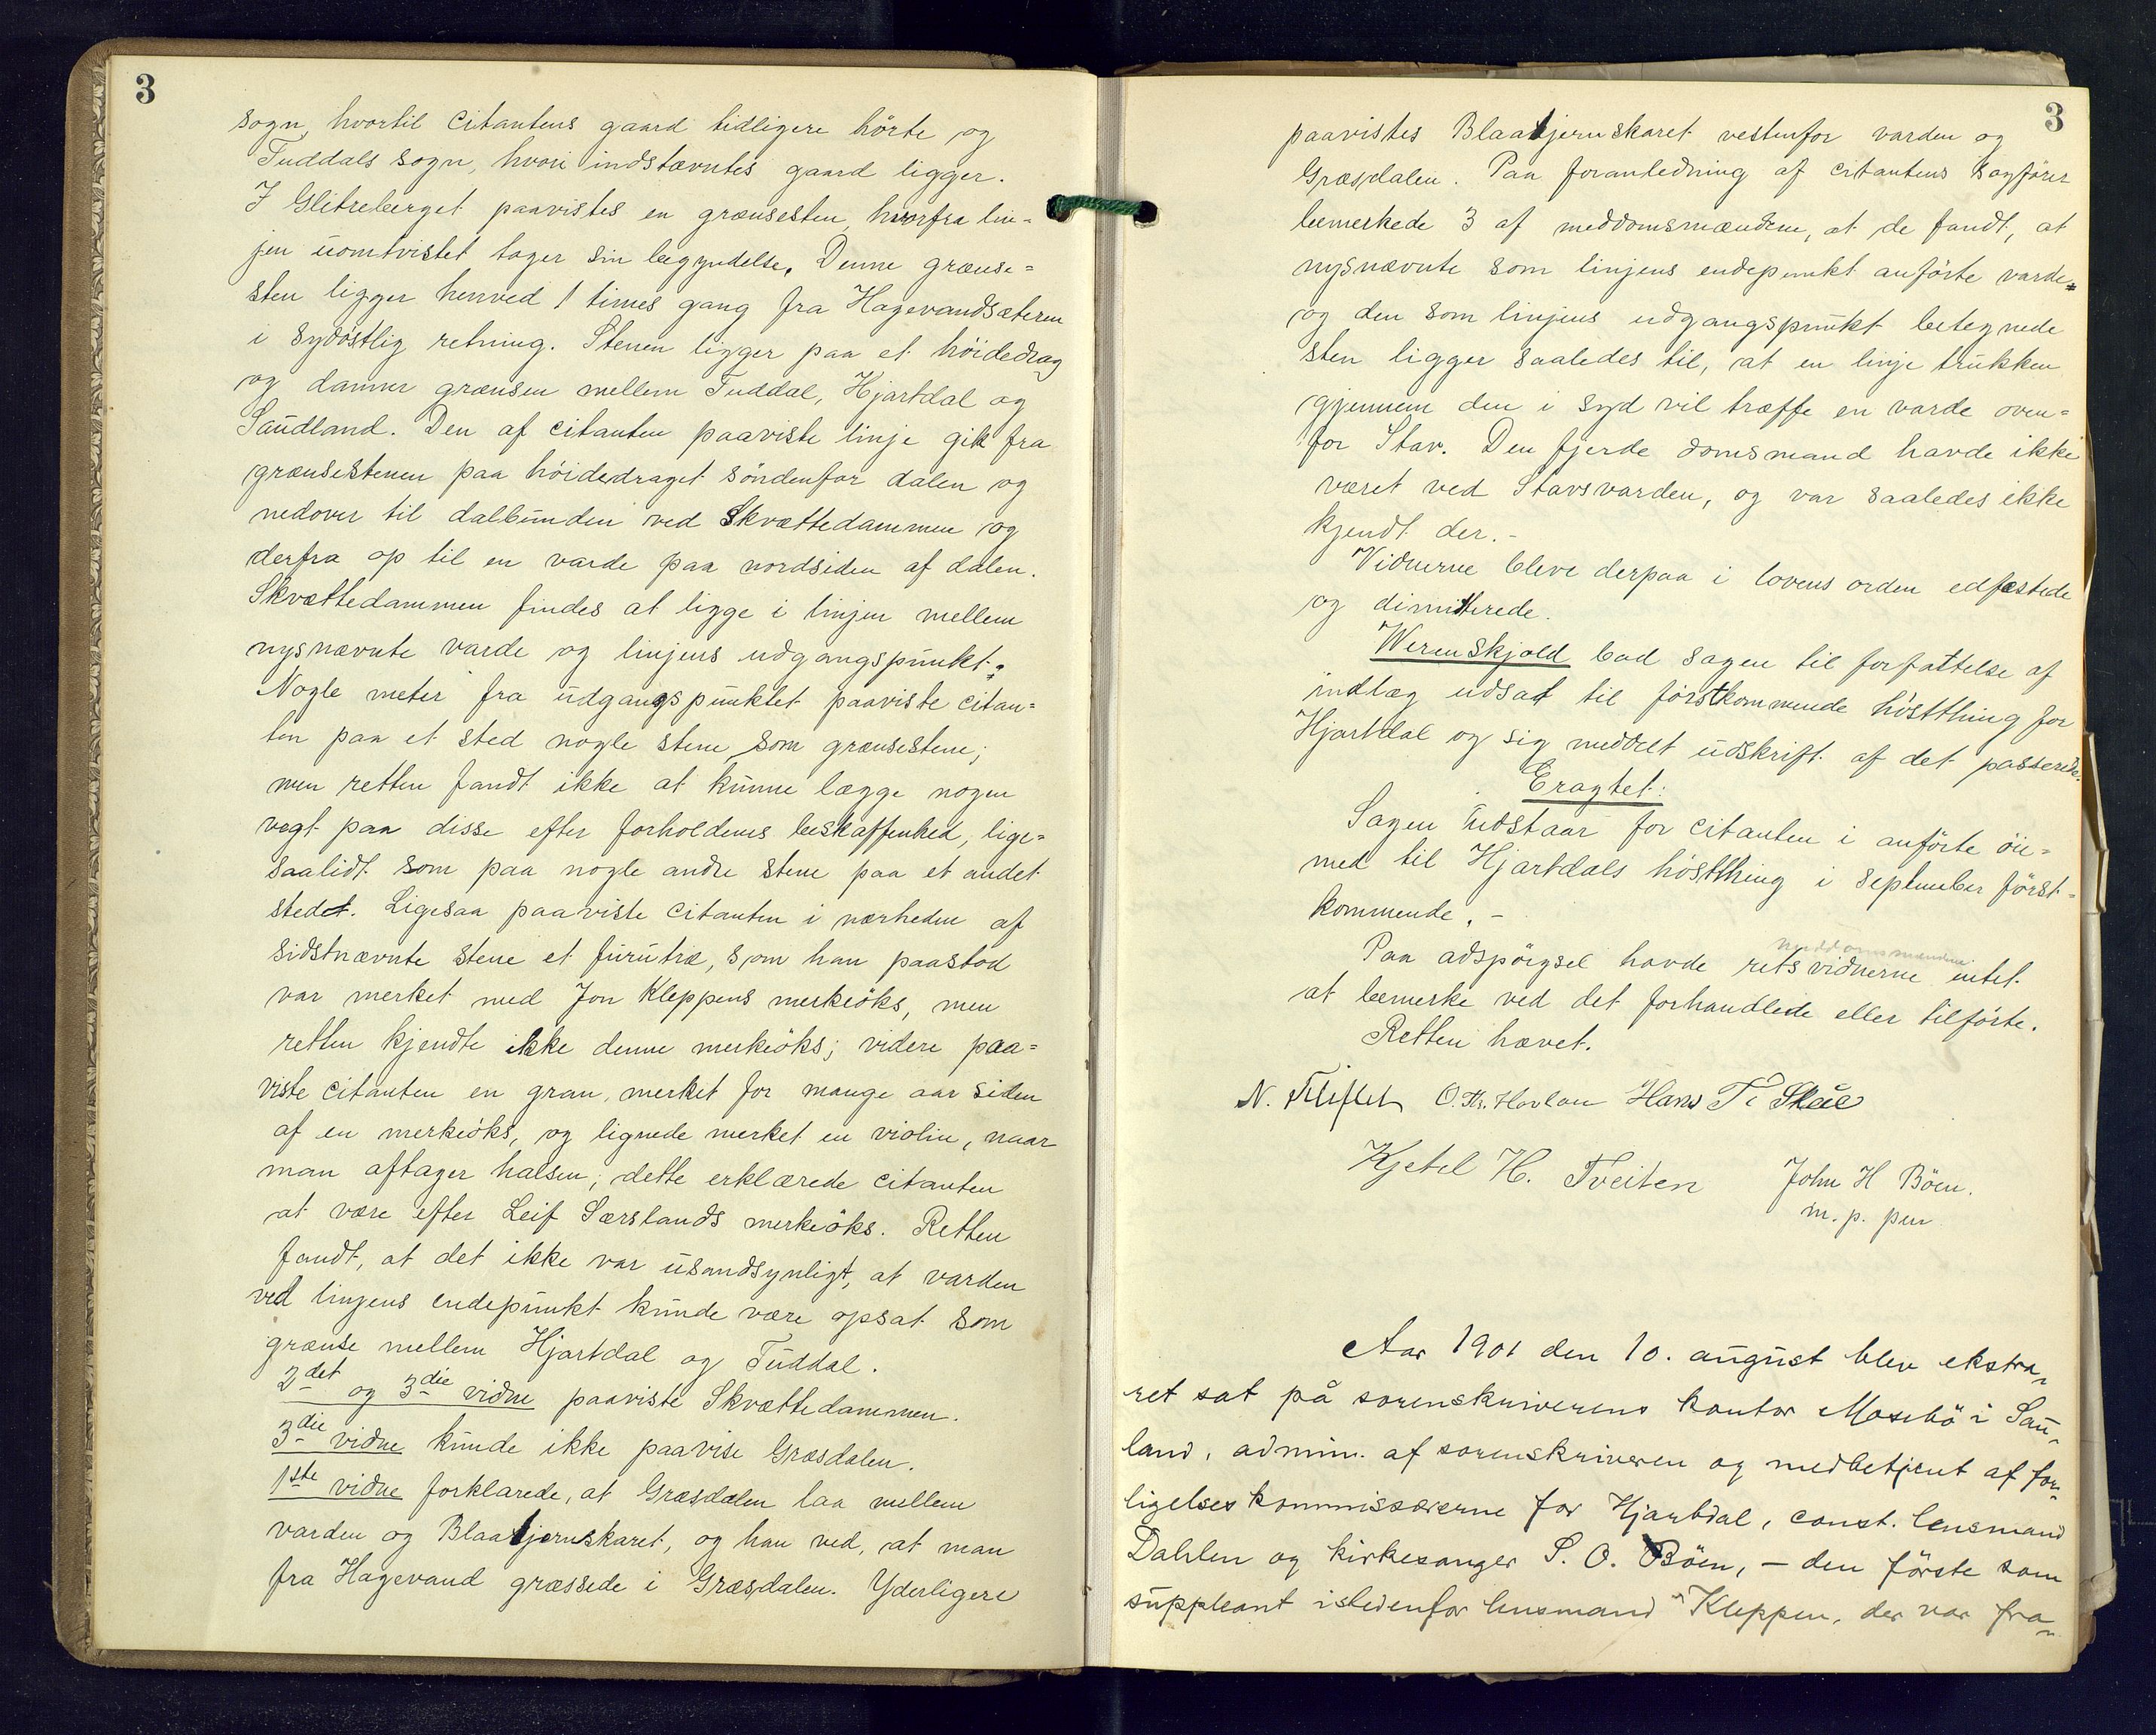 3
sogn, hvortil citantens gaard tidligere hörte og
Tuddals sogn, hvori indstævntes gaard ligger.
I Glitreberget paavistes en grænsesten, hvorfra lin-
jen uomtvistet tager sin begyndelse. Denne grænse-
sten ligger henved 1 times gang fra Hagevandsæteren
i sydöstlig retning. Stenen ligger paa et höidedrag
og danner grænsen mellem Tuddal, Hjartdal og
Saudland. Den af citanten paaviste linje gik fra
grænsestenen paa höidedraget söndenfor dalen og
nedover til dalbunden ved Skvættedammen og
derfra op til en varde paa nordsiden af dalen.
Skvættedammen findes at ligge i linjen mellem
nysnævnte varde og linjens udgangspunkt.
Nogle meter fra udgangspunktet paaviste citan-
ten paa et sted nogle stene som grænsestene;
men retten fandt ikke at kunne lægge nogen
vegt paa disse efter forholdenes beskaffenhed, lige-
saalidt som paa nogle andre stene paa et andet
stedet. Ligesaa paaviste citanten i nærheden af
sidstnævnte stene et furutræ, som han paastod
var merket med Jon Kleppens merkeöks, men
retten kjendte ikke denne merkeöks; videre paa-
viste citanten en gran, merket for mange aar siden
af en merkeöks, og lignede merket en violin, naar
man aftager halsen; dette erklærede citanten
at være efter Leif Særslands merkeöks. Retten
fandt, at det ikke var usandsynligt, at varden
ved linjens endepunkt kunde være opsat som
grænse mellem Hjartdal og Tuddal.
2det og 3die vidne paaviste Skvættedammen.
3die vidne kunde ikke paavise Græsdalen.
1ste vidne forklarede, at Græsdalen laa mellem
varden og Blaatjernskaret, og han ved, at man
fra Hagevand græssede i Græsdalen. Yderligere
3
paavistes Blaatjernskaret vestenfor varden og
Græsdalen. Paa foranledning af citantens sagförer
bemerkede 3 af meddomsmændene, at de fandt, at
nysnævnte som linjens endepunkt anförte varde
og den som linjens udgangspunkt betegnede
sten ligger saaledes til, at en linje trukken
gjennem den i syd vil træffe en varde oven-
for Stav. Den fjerde domsmand havde ikke
været ved Stavsvarden, og var saaledes ikke
kjendt der.-
Vidnerne bleve derpaa i lovens orden edfæstede
og dimitterede.
Werenskjold bad sagen til forfattelse af
indlæg udsat til förstkommende höstthing for
Hjartdal og sig meddelt udskrift af det passerede.
Eragtet:
Sagen udstaar for citanten i anförte öie-
med til Hjartdals höstthing i september först-
kommende. -
meddomsmændene
Paa adspörgsel havde retsvidnerne intet
at bemerke ved det forhandlede eller tilförte.
Retten hævet.
N. O. Kr. Hovlan Hans T. Skeie
Kjetel H. Tveiten John H Böen.
m. p. pen
Aar 1901 den 10. august blev ekstra-
ret sat på sorenskriverens kontor Mosebö i Sau-
land, admin. af sorenskriveren og medbetjent af for-
ligelseskommissærerne for Hjartdal, const. lensmand
Dahlen og kirkesanger S. O. Böen, - den förste som
suppleant istedenfor lensmand Kleppen, der var fra-